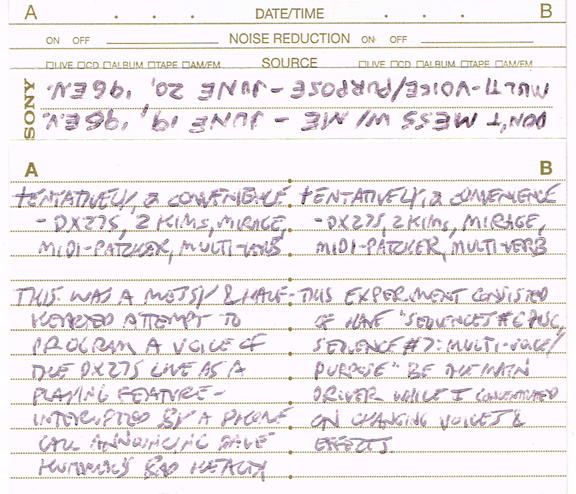 A DATE/TIME B
ON OFF NOISE REDUCTION ON OFF
LIVE CD ALBUM TAPE AM/FM SOURCE LIVE CD ALBUM TAPE AM/FM
SONY
DON'T MESS W/ ME - JUNE 19, '96 E.V.
MULTI-VOICE/PURPOSE - JUNE 20, '96 E.V.
A
TENTATIVELY, a CONVENIENCE
- DX27S, 2 KIMs, MIRAGE,
MIDI-PATCHER, MULTI-VERB
THIS WAS A MESSY & HALF-
HEARTED ATTEMPT TO
PROGRAM A VOICE OF
THE DX27S LIVE AS A
PLAYING FEATURE -
INTERRUPTED BY A PHONE
CALL ANNOUNCING DAVE
BAD HEALTH
B
TENTATIVELY, a CONVENIENCE
- DX27S, 2 KIMs, MIRAGE,
MIDI-PATCHER, MULTI-VERB
THIS EXPERIMENT CONSISTED
OF HAVE "SEQUENCES #6 DISC,
SEQUENCE #7: MULTI-VOICE/
PURPOSE" BE THE MAIN
DRIVER WHILE I CONCENTRATED
ON CHANGING VOICES &
EFFECTS.